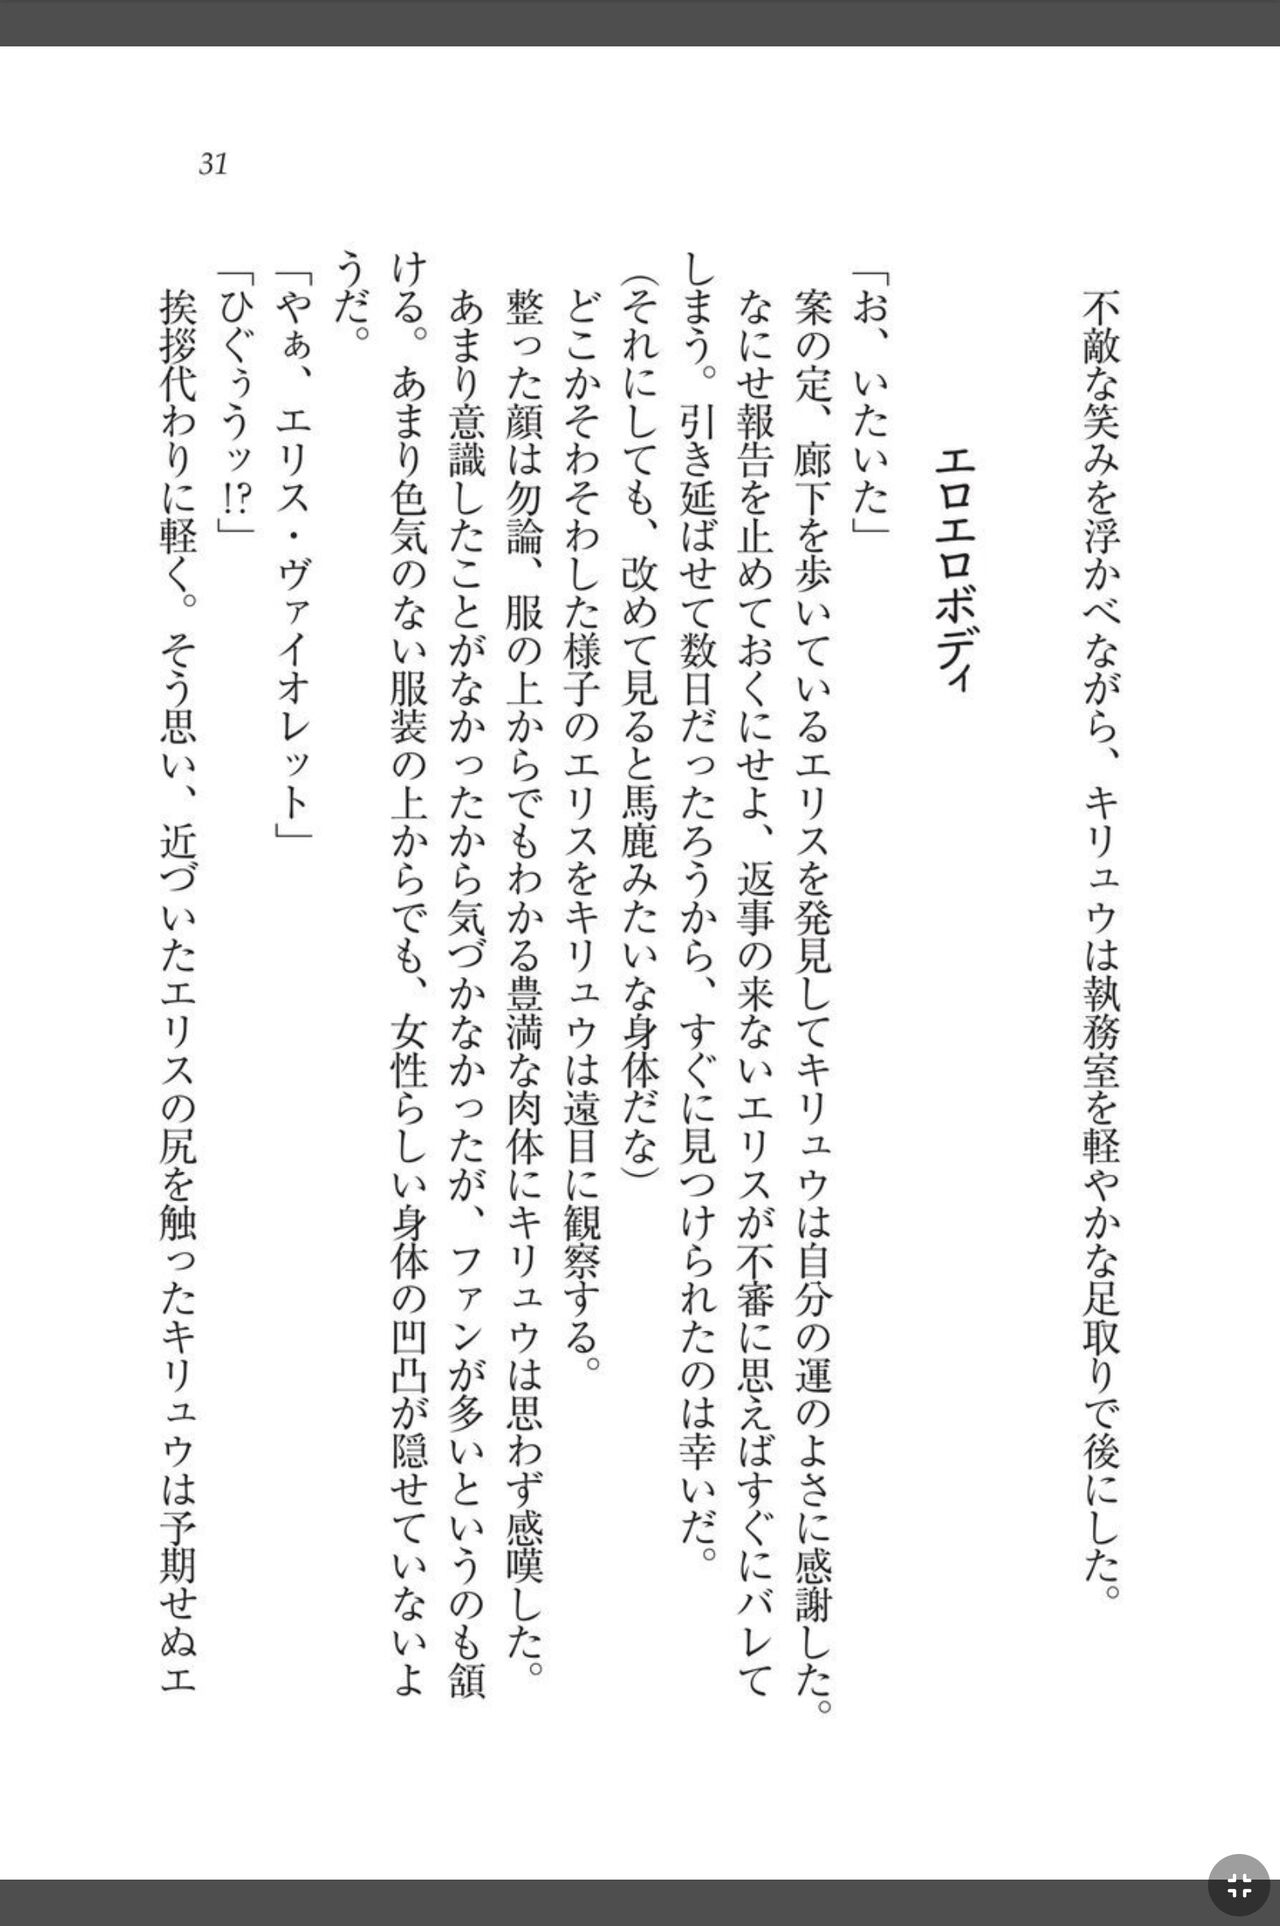 31
不敵な笑みを浮かべながら、キリュウは執務室を軽やかな足取りで後にした。
エロエロボディ
「お、いたいた」
案の定、廊下を歩いているエリスを発見してキリュウは自分の運のよさに感謝した。
なにせ報告を止めておくにせよ、返事の来ないエリスが不審に思えばすぐにバレて
しまう。引き延ばせて数日だったろうから、すぐに見つけられたのは幸いだ。
（それにしても、改めて見ると馬鹿みたいな身体だな）
どこかそわそわした様子のエリスをキリュウは遠目に観察する。
整った顔は勿論、服の上からでもわかる豊満な肉体にキリュウは思わず感嘆した。
あまり意識したことがなかったから気づかなかったが、ファンが多いというのも頷
ける。あまり色気のない服装の上からでも、女性らしい身体の凹凸が隠せていないよ
うだ。
「やぁ、エリス・ヴァイオレット」
「ひぐぅうッ!?」
挨拶代わりに軽く。そう思い、近づいたエリスの尻を触ったキリュウは予期せぬエ